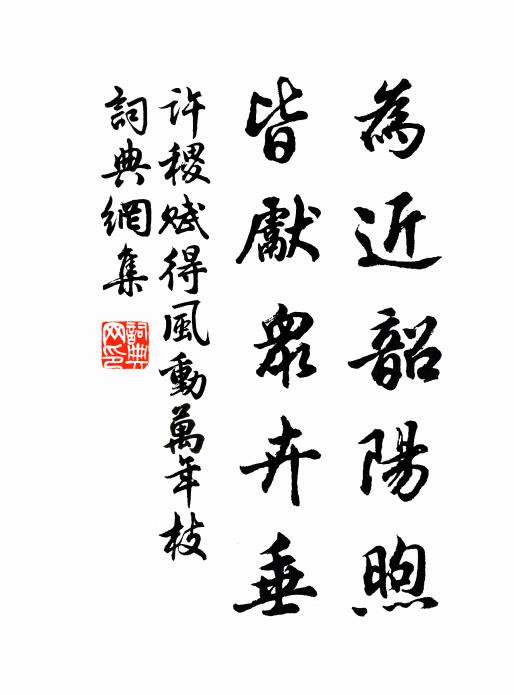 為近韶陽煦
皆獻眾卉垂
許稷賦得風動萬年枝
詞典網集
詞典网印